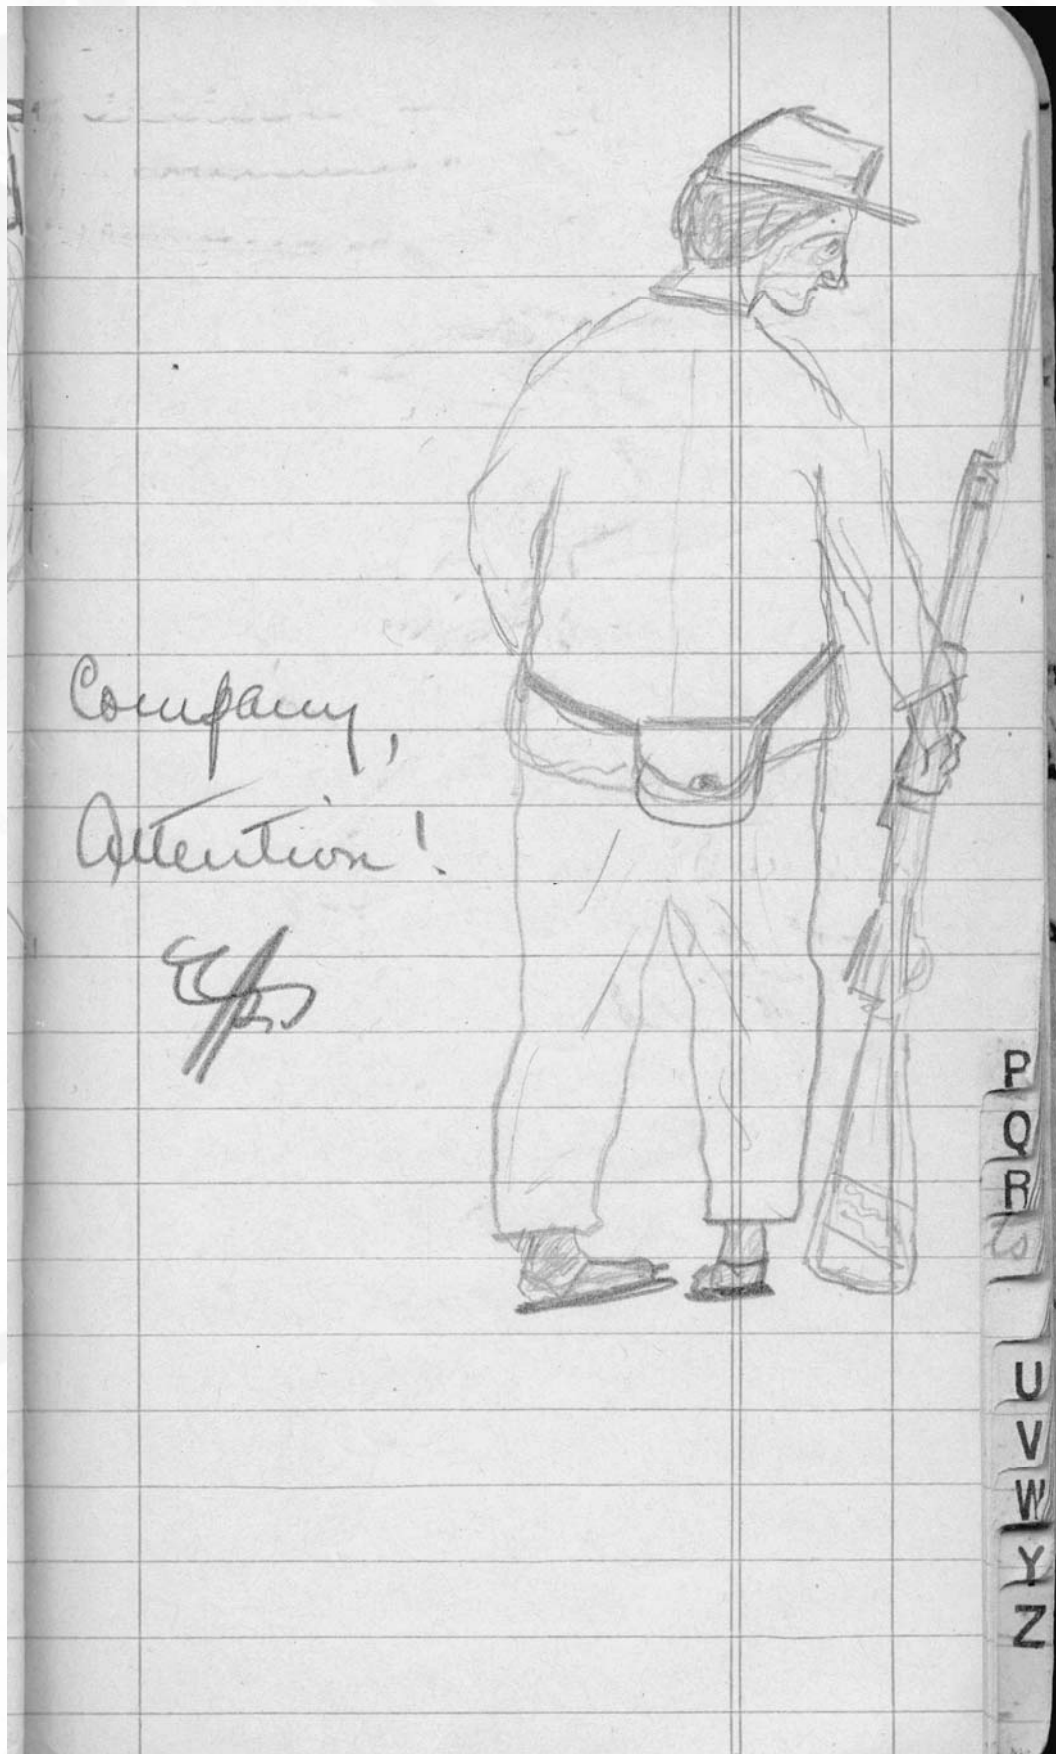 Company,
Attention!
P
Q
R
S
U
V
W
Y
Z